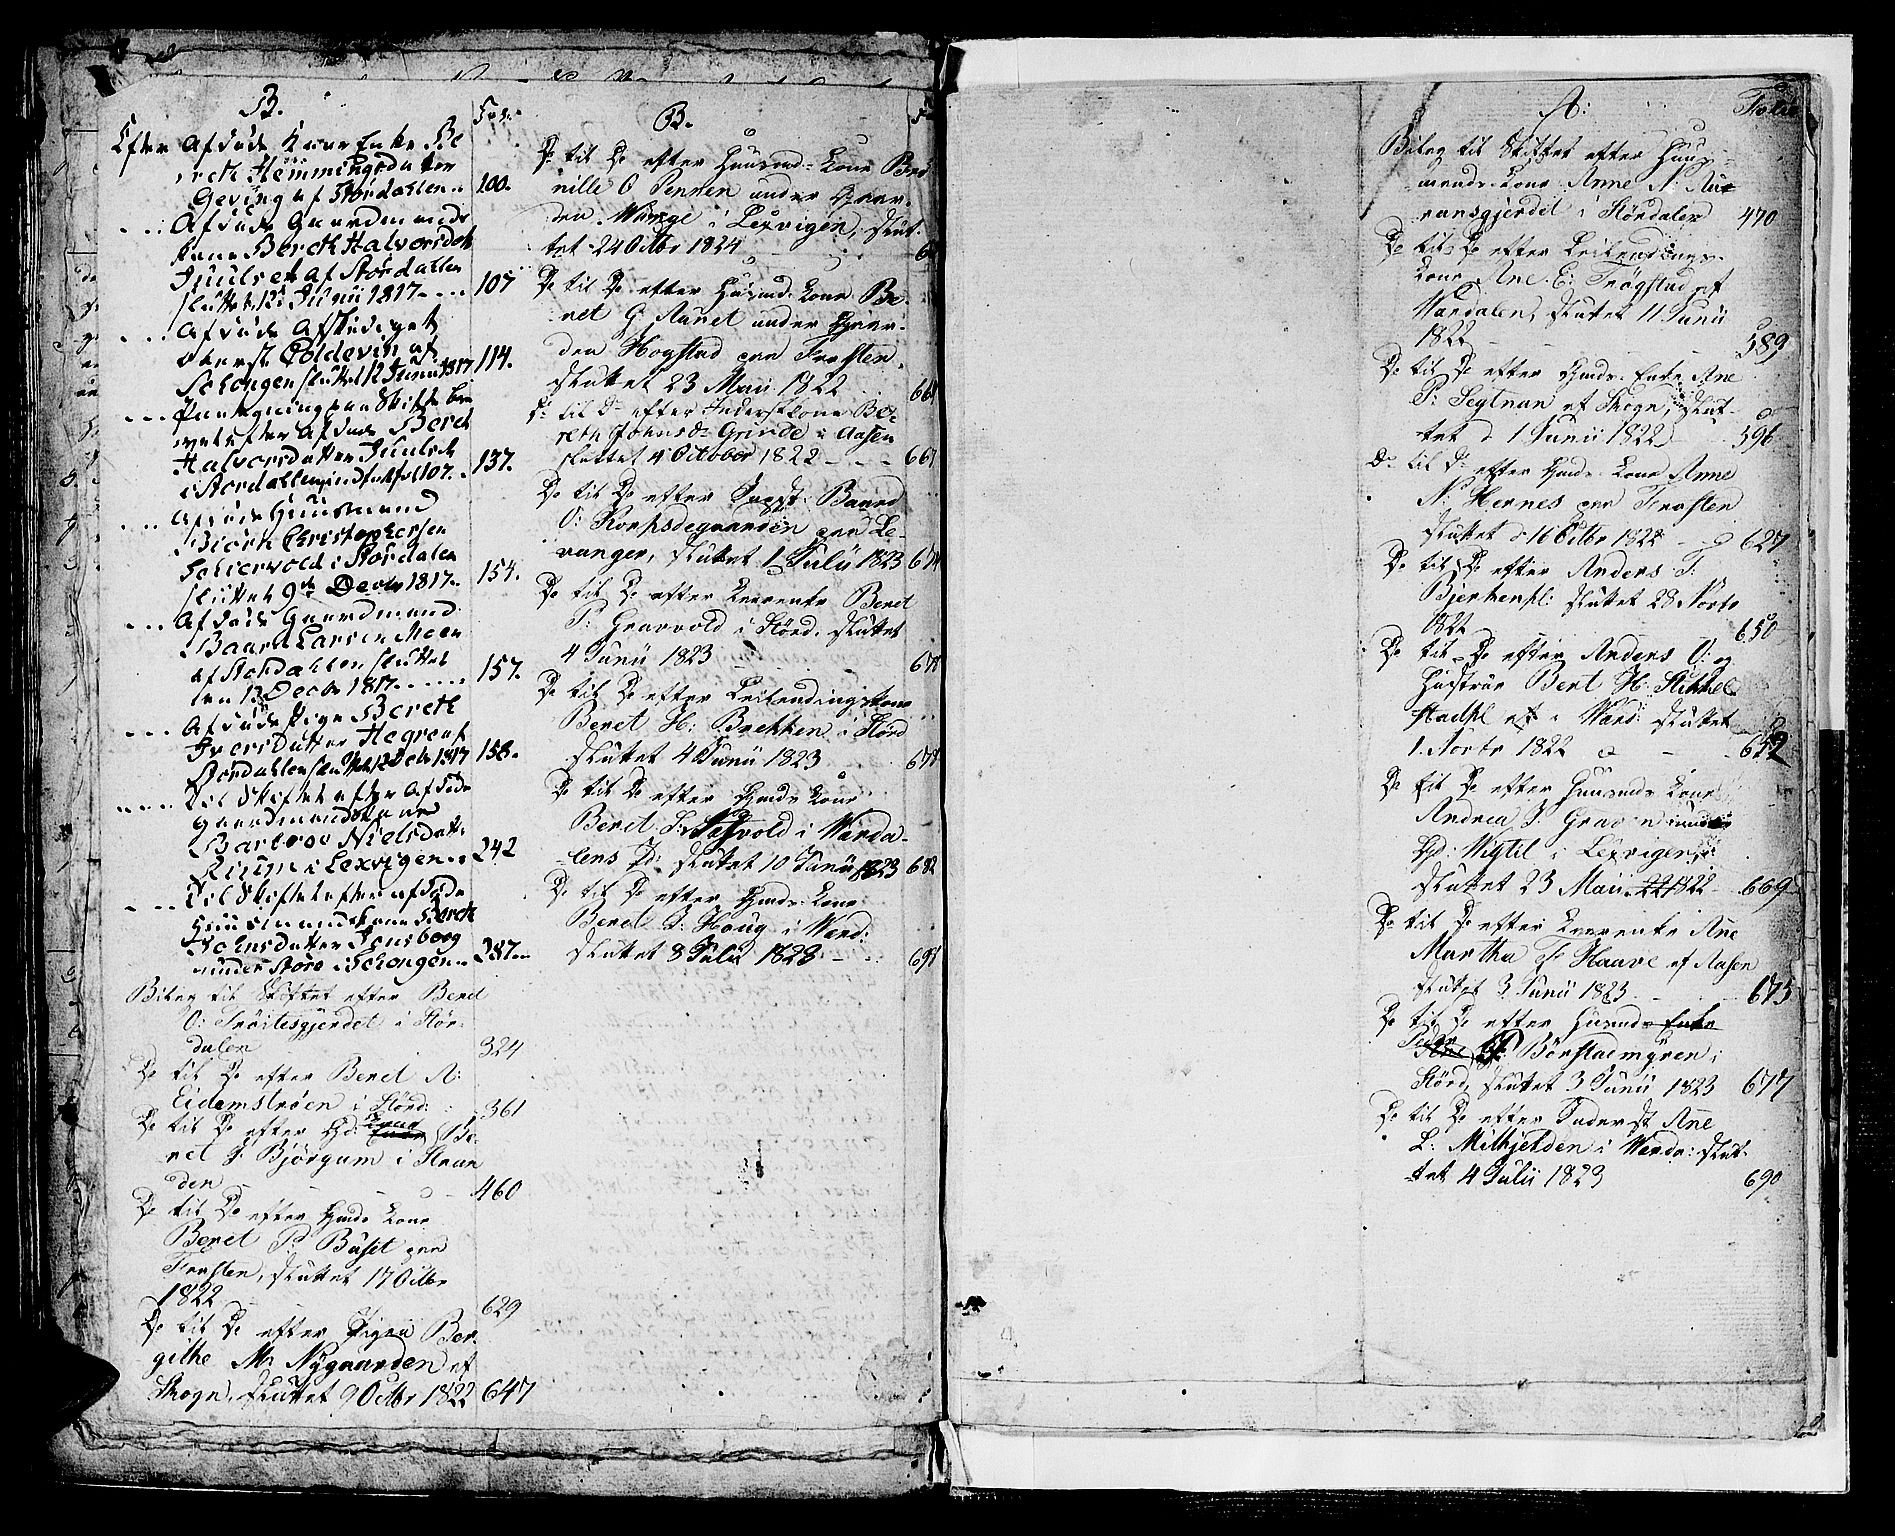 B.
Fol:
Efter Afdøde Kaar Enke Be
reth Hemmingsdatter
Geving af Størdahlen .. 100.
... Afdøde Gaardmands
kone Bereth Halvorsdatt
Juulset af Størdahlen
sluttet 12 Junii 1817 .... 107
... Afdøde Afskediget
Coldevin af
Schongen sluttet 12 Junii 1817 114.
... Paategning paa Skifte bre
vet efter Afdøde Bereth
Halvorsdatter Juulset
i Størdahlen indf. fol 107. .. 137.
... Afdøde Huusmand
Biørn Christophersen
i Størdalen
sluttet 9de Decbr 1817 .. 154.
... Afdøde Gaardmand
Baard Larsen Moen
af Størdahlen sluttet
den 12 Decbr 1817 ...... 157.
... Afdøde Pige Bereth
Iversdatter Hegre af
Størdahlen sluttet 12 Decbr 1817 158.
.... Til Skiftet efter Afdøde
Gaardmandskone
Barbroe Nielsdatt:
i Lexvigen .. 242
... Til Skiftet efter afdøde
Huusmandskone Bereth
Johnsdatter Jensborg
under Støre i Schongen .. 287
Bilag til Skiftet efter Beret
O: Trøitesgjerdet i Stør-
dalen 324
Do til Do efter Beret A:
Eidemstrøen i Størd: 361
Do til Do efter Hd: Kone Be-
ret J: Bjørgum i Stran
den 460
Do til Do efter Hmds Kone
Beret P: Buset paa
Frosten, sluttet 17 Octbr
1822 629
Do til Do efter Pigen Ber-
githe M: Nygaarden af
Skogn, sluttet 9 Octbr 1822 647
B.
F
Do til Do efter Huusmd: Kone Ber
nille O Pennen under Gaar-
den Wange i Lexvigen, slut-
tet 24 Octbr 1824
Do til Do efter Huusmd: Kone Be-
ret G: Aunet under Gaar-
den Hogstad paa Frosten,
sluttet 23 Maii 1822 66
Do til Do efter Inderstkone Be-
reth Johnsdr Grinde i Aasen
sluttet 4 October 1822 66
Do til Do efter Baard
O: Korpsdegaarden paa Le-
vanger, sluttet 1 Julii 1823 67
Do til Do efter Beret
P: Gravvold i Størd. sluttet
4 Junii 1823 67
Do til Do efter Leilendingskone
Beret H: Bækken i Størd
sluttet 4 Junii 1823 67
Do til Do efter Hmds Kone
Beret J: vold i Værda-
lens Pd: sluttet 10 Junii 1823 68
Do til Do efter Hmds Kone
Beret J: Houg i Værd:
sluttet 8 Julii 1823 69
A:
Folio
Bilag til Skiftet efter Huus-
mands Kone Anne N Au-
ransgjerdet i Størdalen 470
Do til Do efter Leilendings-
kone Ane E: Trøgstad af
Værdalen, sluttet 11 Junii
1822 589
Do til Do efter Hmds: Enke Ane
P: Segtnan af Skogn, slut-
tet d 1 Junii 1822 596
Do til Do efter Hmds Kone Anne
N: Hernes paa Frosten
sluttet d 16 Octbr 1822 627
Do til Do efter Anders T:
Bjerkenpl: sluttet 28 Novbr
1822 650
Do til Do efter Anders O: og
Hustrue Beret H: Stikkel-
stadpl i Værd: sluttet
1 Novbr 1822 652
Do til Do efter Huusmds Kone
Andrea J. Graven under
Gd: Wigtil i Lexvigen,
sluttet 23 Maii 1822 669
Do til Do efter Ane
Martha F Haave af Aasen
sluttet 3 Junii 1823 675
Do til Do efter Huusmd Enke
Peder P Børstadmgren i
Størd, sluttet 3 Junii 1823 677
Do til Do efter Inderst Ane
L: Mikjelden i Værda: slut-
tet 4 Julii 1823 690